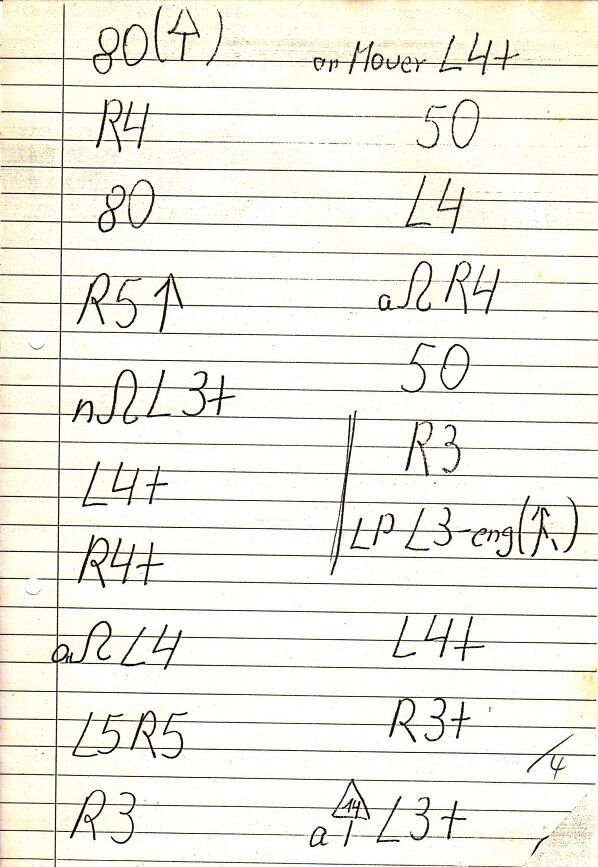 80(↑)
R4
80
R5↑
nΩL3+
L4+
R4+
anΩL4
L5R5
R3
an Mauer L4+
50
L4
aΩR4
50
R3
LP L3-eng(↑)
L4+
R3+
/4
a 14 L3+